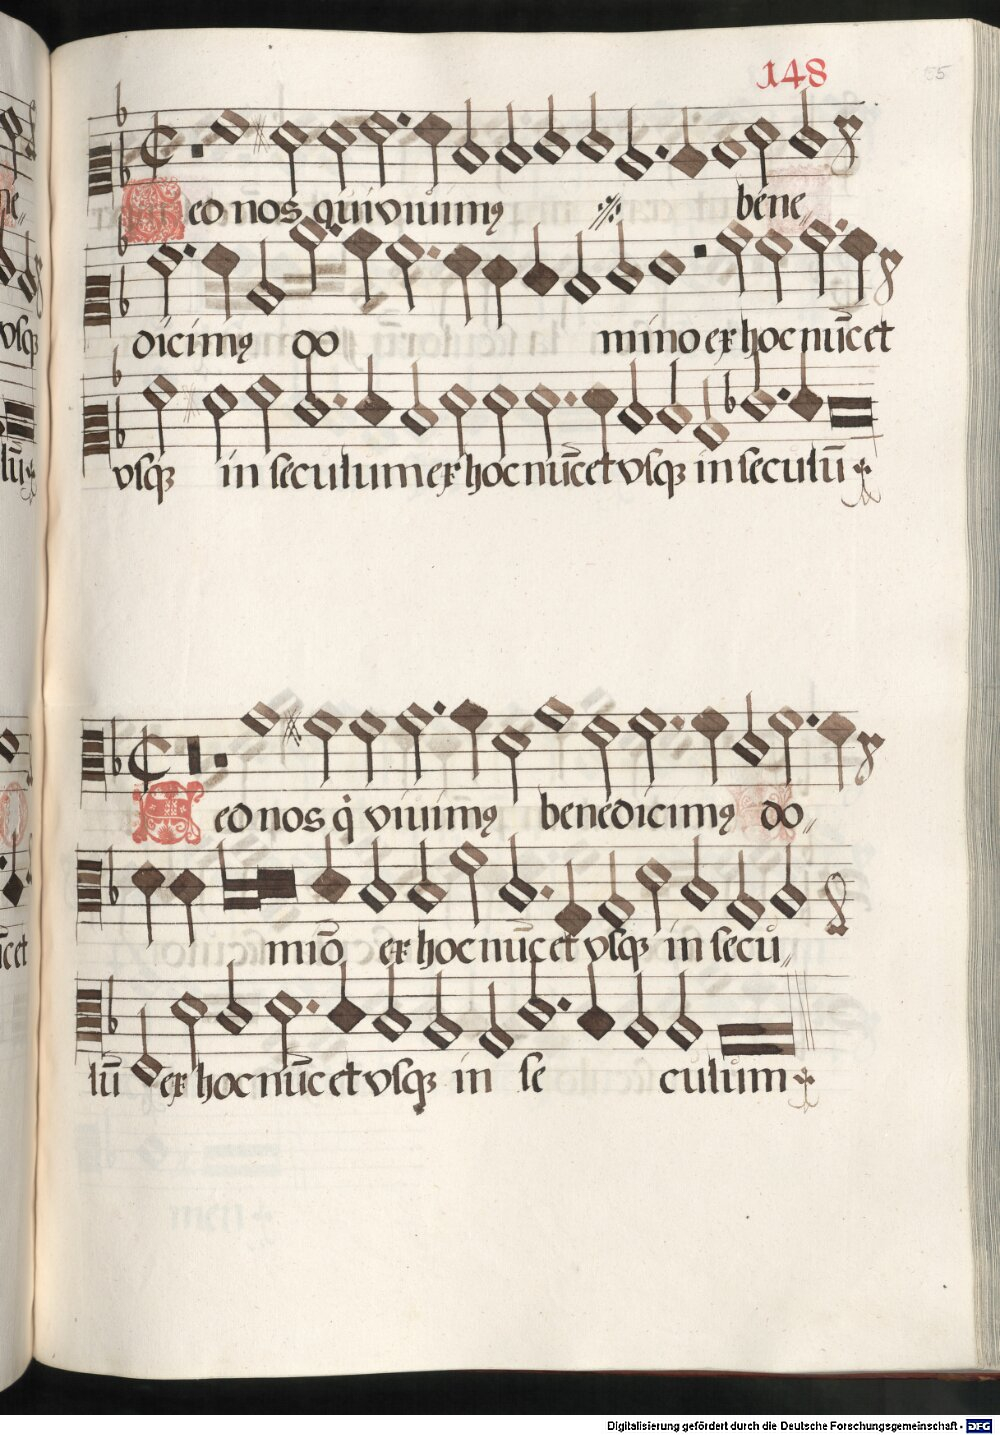 148
55
Sed nos qui viuimꝰ ·//· bene„
dicimꝰ do mino ex hoc nūc et
vsqꝫ in seculum ex hoc nūc et vsqꝫ in seculū
Sed nos q̇ viuimꝰ benedicimꝰ do„
mīo ex hoc nūc et vsqꝫ in secu„
lū ex hoc nūc et vsqꝫ in se culum
Digitalisierung gefördert durch die Deutsche Forschungsgemeinschaft - DFG